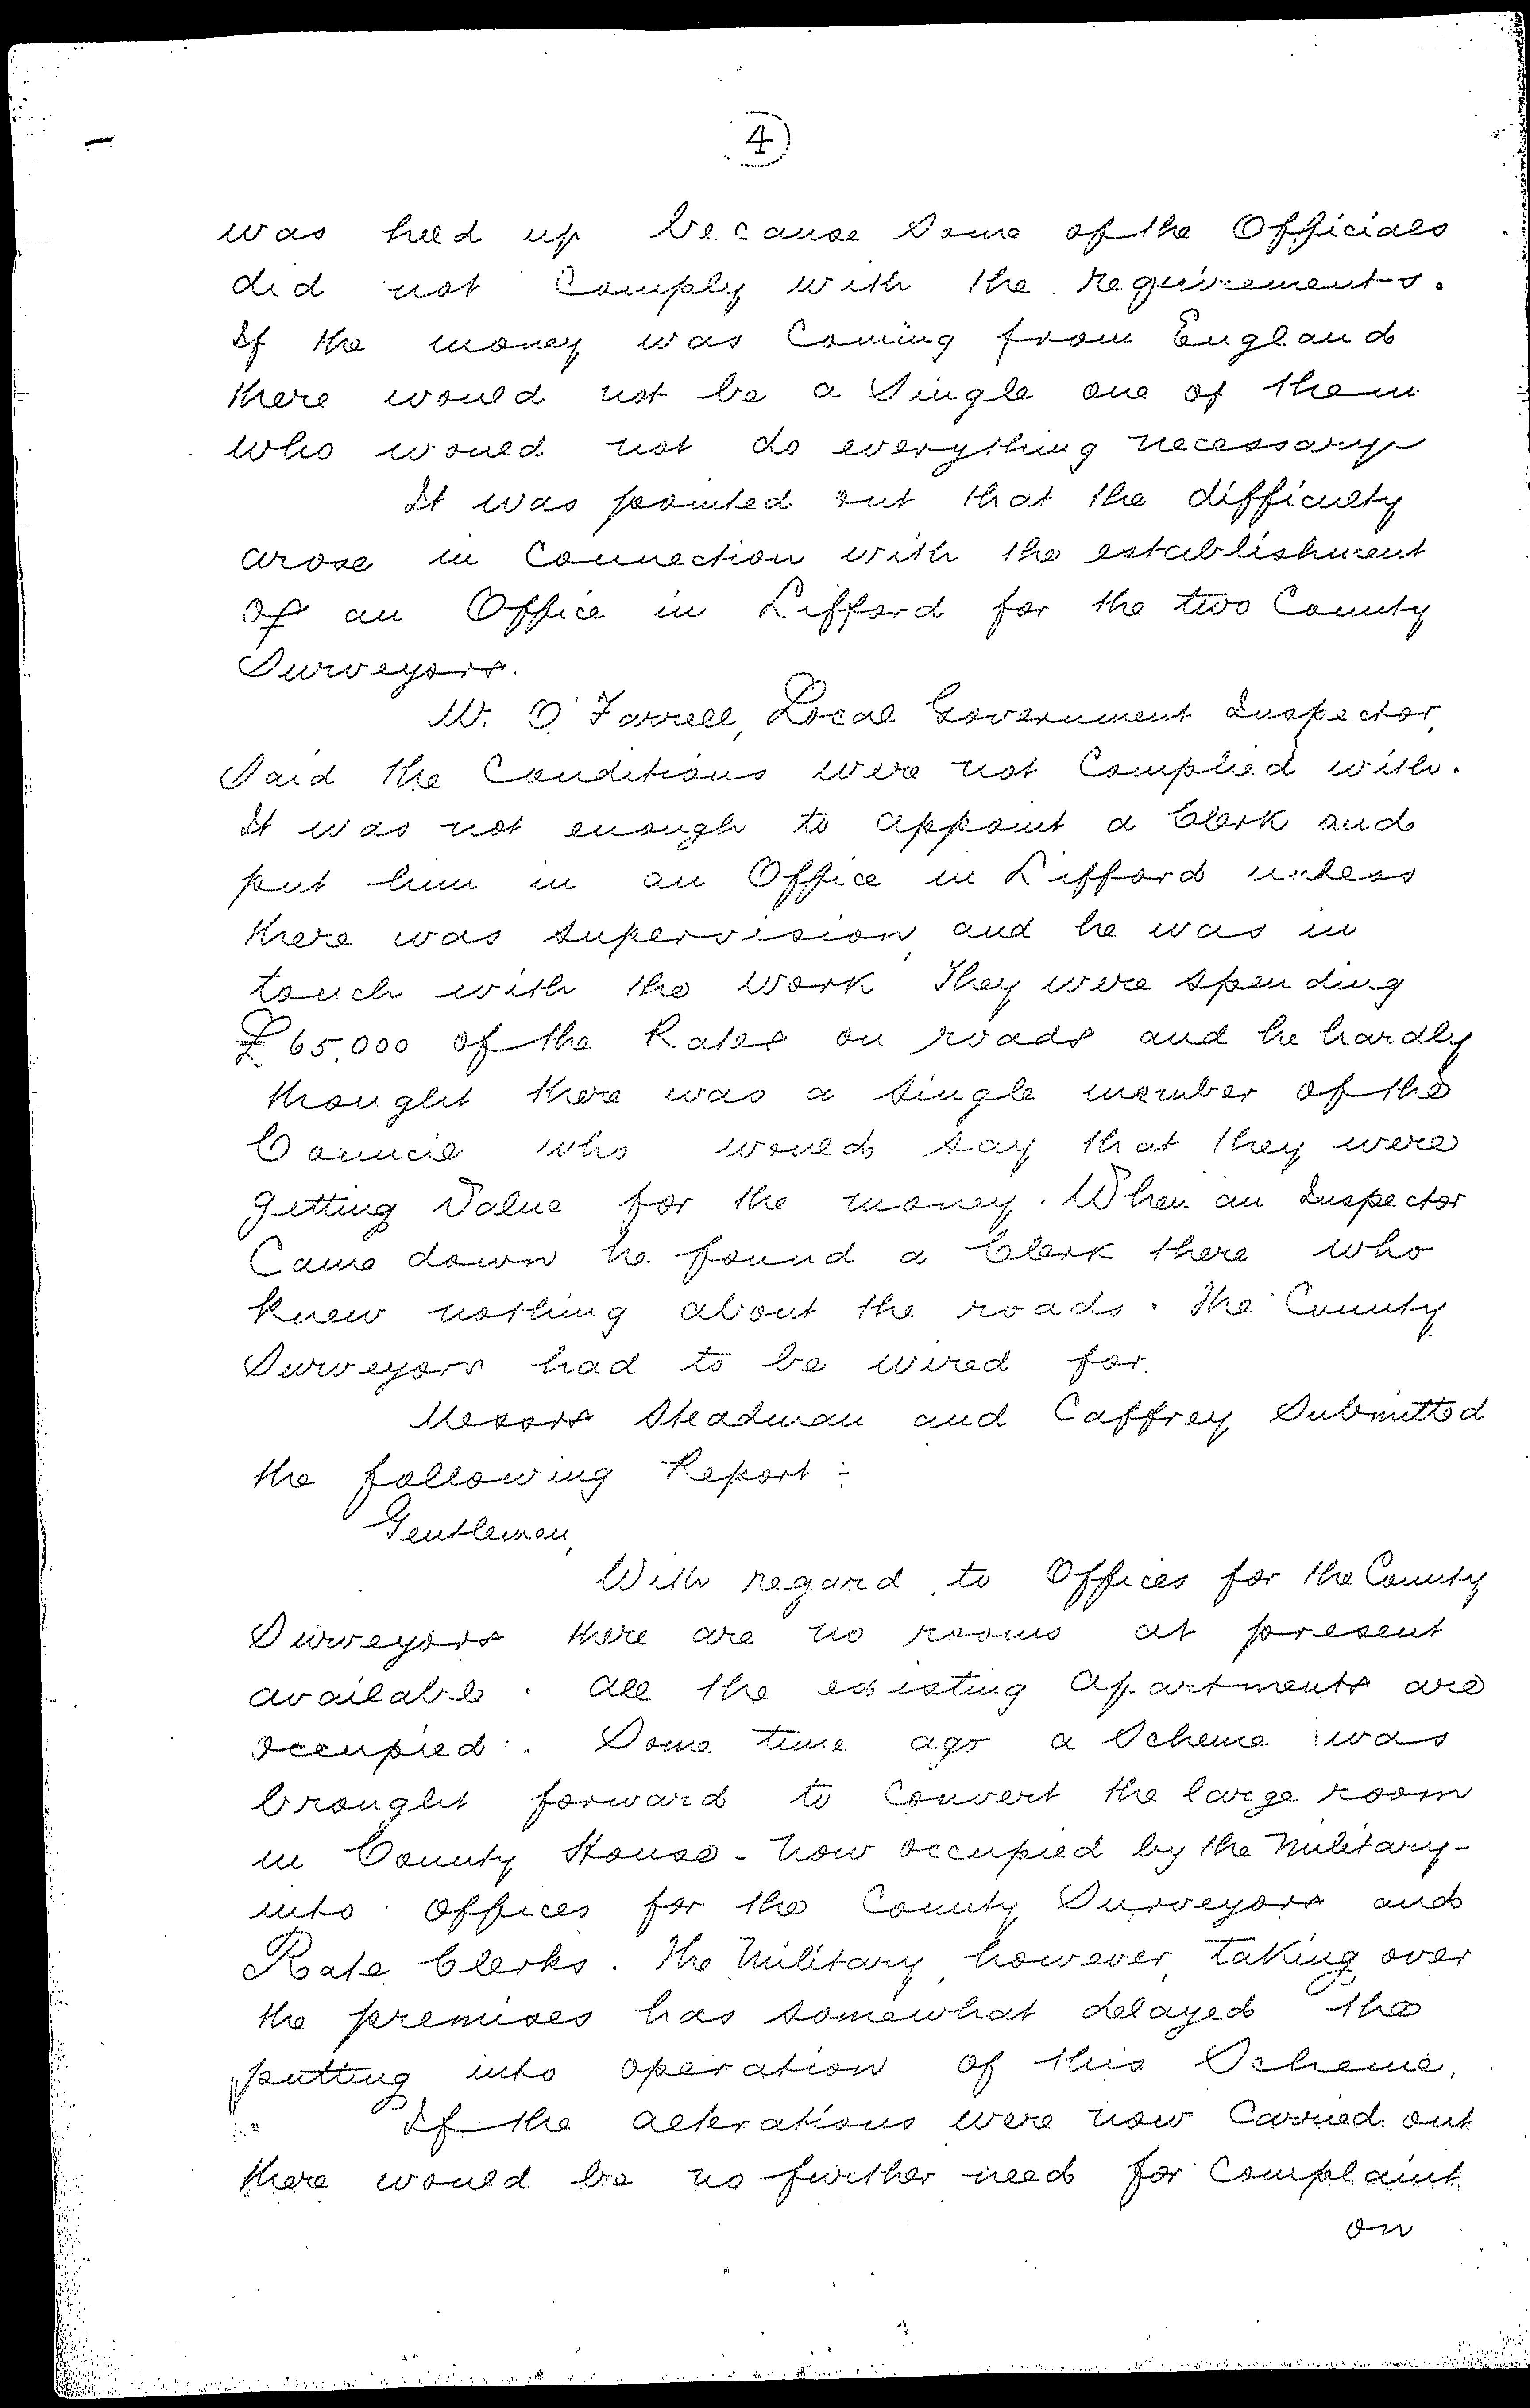 4
was held up because some of the Officials
did not Comply with the requirements.
If the money was Coming from England
there would not be a Single one of them
who would not do everything necessary
It was pointed out that the difficulty
arose in Connection with the establishment
of an Office in Lifford for the two County
Surveyors.
Mr. O'Farrell, Local Government Inspector,
Said the Conditions were not Complied with.
It was not enough to appoint a Clerk and
put him in an Office in Lifford unless
there was supervision, and he was in
touch with the work They were spending
£65,000 of the Rates on roads and he hardly
thought there was a single member of the
Council who would say that they were
getting Value for the money. When an Inspector
Came down he found a Clerk there who
knew nothing about the roads. The County
Surveyors had to be wired for.
Messrs Steadman and Caffrey Submitted
the following Report :-
Gentlemen,
With regard to Offices for the County
Surveyors there are no rooms at present
available. All the existing apartments are
occupied. Some time ago a Scheme was
brought forward to Convert the large room
in County House - now occupied by the Military -
into offices for the County Surveyors and
Rate Clerks. The Military, however, taking over
the premises has somewhat delayed the
putting into operation of this Scheme.
If the alterations were now Carried out
there would be no further need for Complaint
on